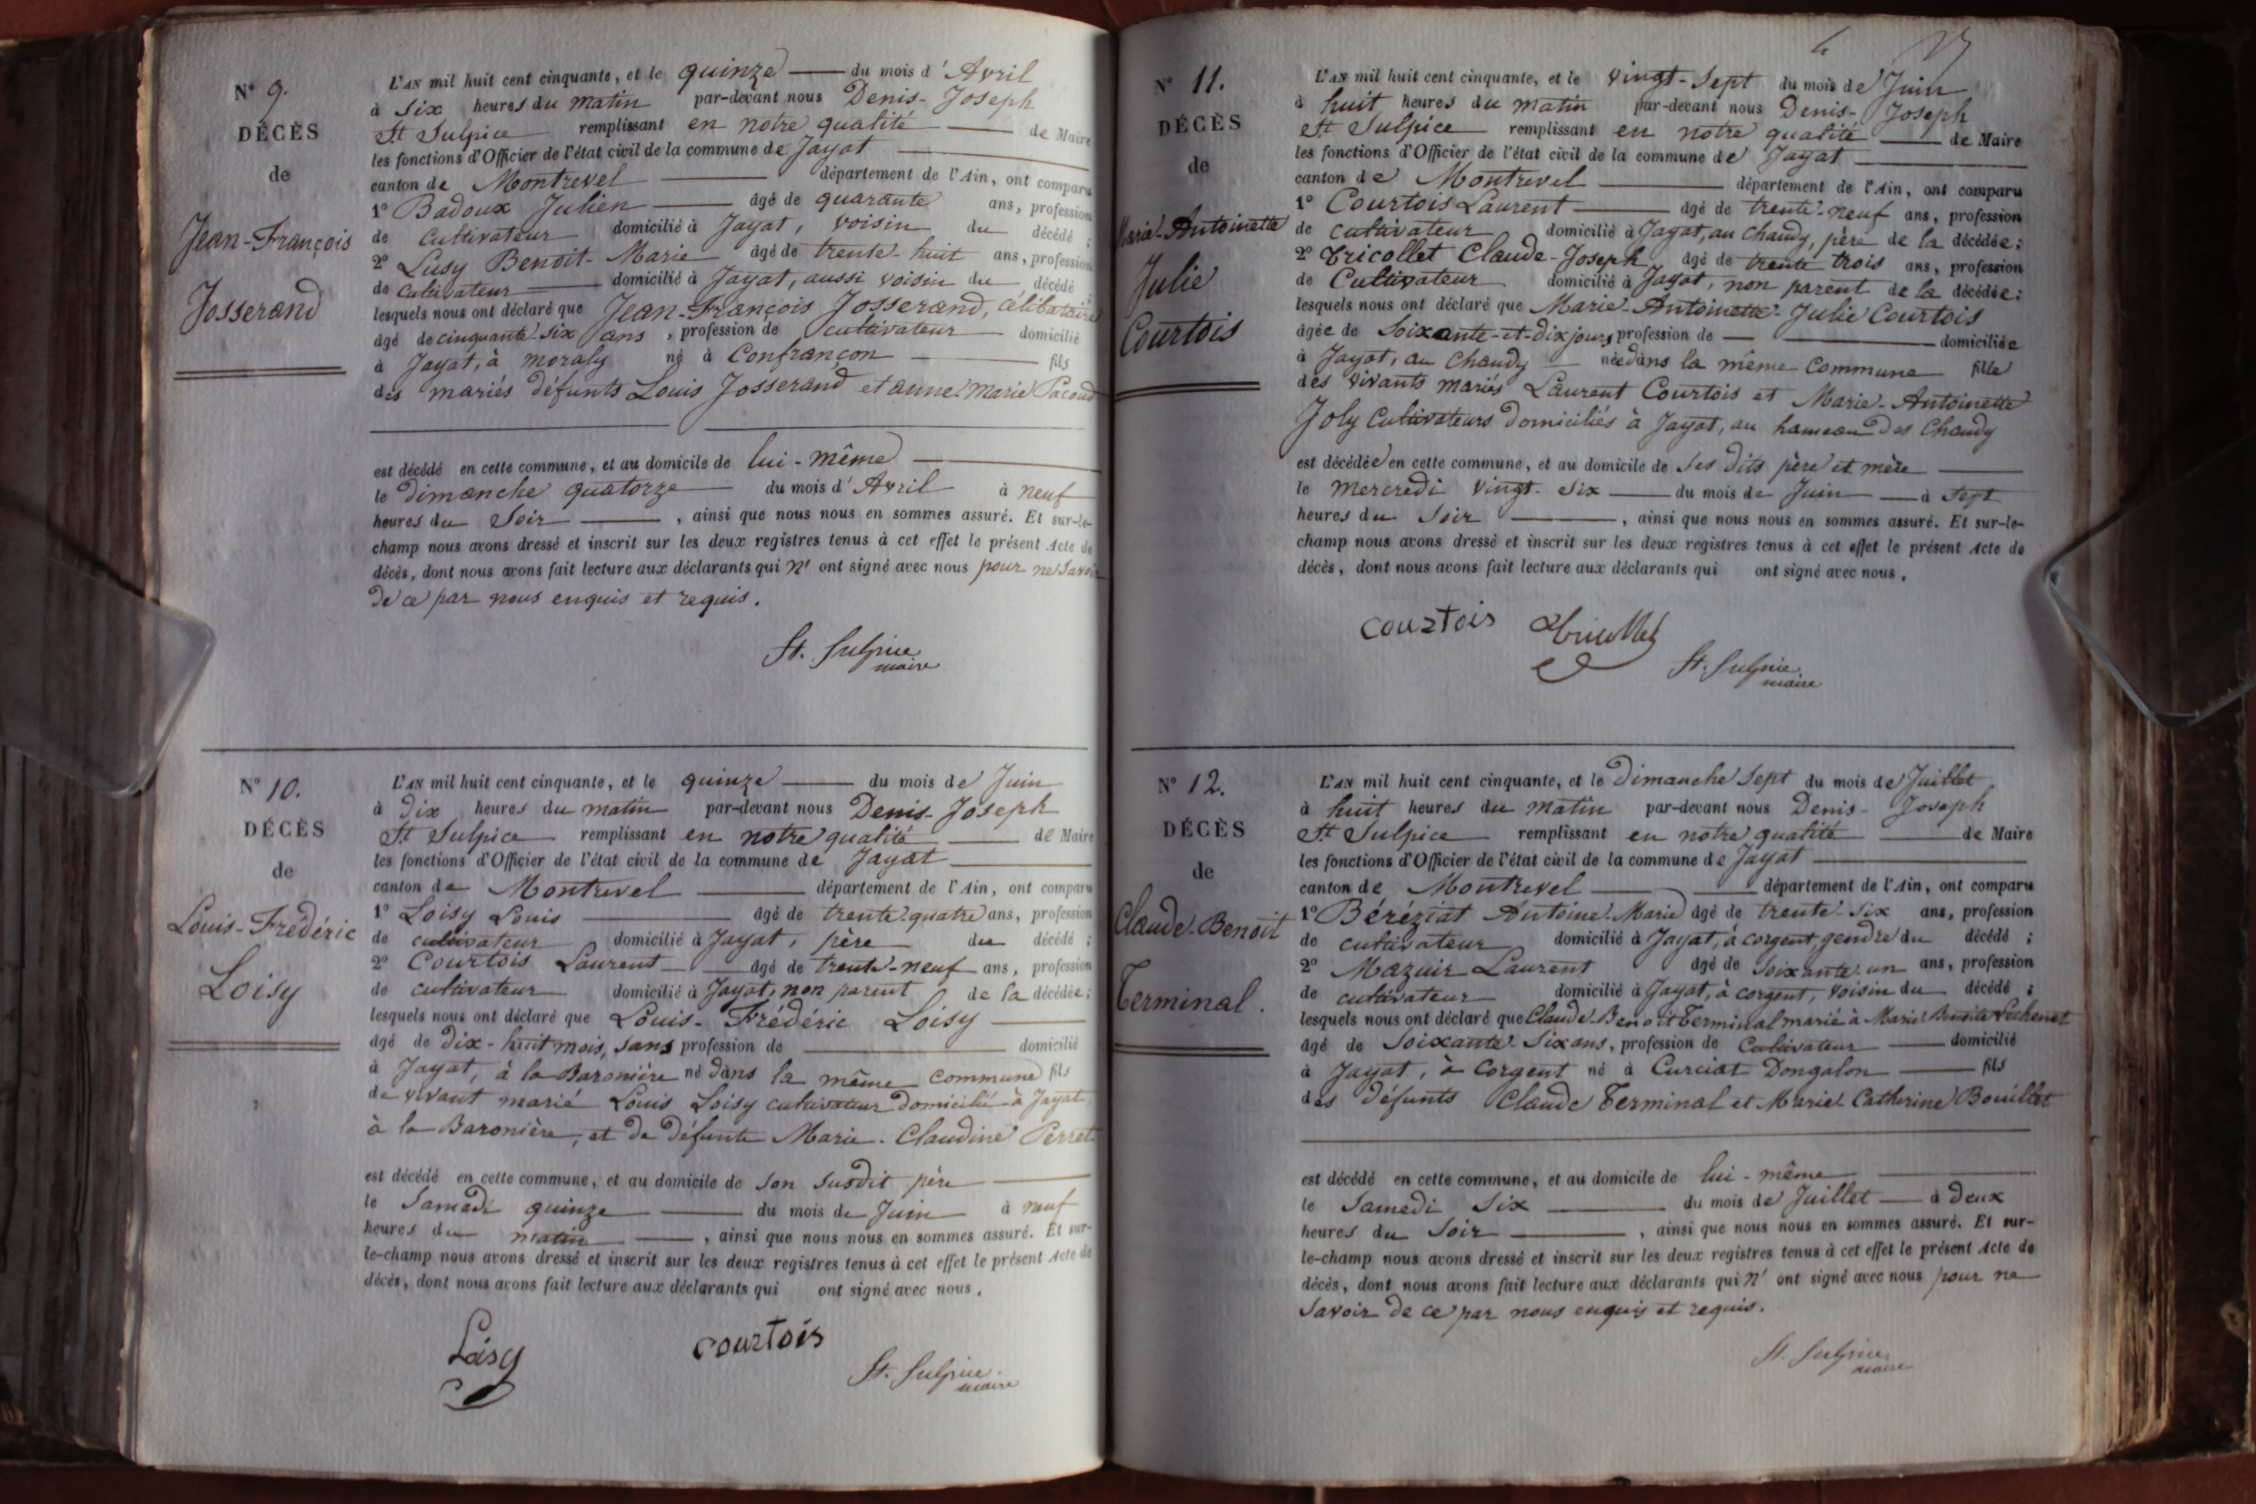 N° 9.
DÉCÈS
de
Jean-François
Josserand
L'AN mil huit cent cinquante, et le quinze du mois d'Avril
à six heures du matin par-devant nous Denis-Joseph
St Sulpice remplissant en notre qualité de Maire
les fonctions d'Officier de l'état civil de la commune de Jayat
canton de Montrevel département de l'Ain, ont comparu
1° Badoux Julien âgé de quarante ans, profession
de cultivateur domicilié à Jayat, voisin du décédé ;
2° Lusy Benoit-Marie âgé de trente-huit ans, profession
de cultivateur domicilié à Jayat, aussi voisin du décédé ;
lesquels nous ont déclaré que Jean-François Josserand, célibataire
âgé de cinquante-six ans, profession de cultivateur domicilié
à Jayat, à moraly né à Confrançon fils
des mariés défunts Louis Josserand et anne-Marie Pacoud
est décédé en cette commune, et au domicile de lui-même
le dimanche quatorze du mois d'Avril à neuf
heures du Soir, ainsi que nous nous en sommes assuré. Et sur-le-
champ nous avons dressé et inscrit sur les deux registres tenus à cet effet le présent Acte de
décès, dont nous avons fait lecture aux déclarants qui n'ont signé avec nous pour ne savoir
de ce par nous enquis et requis.
St. Sulpice
maire
N° 10.
DÉCÈS
de
Louis-Frédéric
Loisy
L'AN mil huit cent cinquante, et le quinze du mois de Juin
à dix heures du matin par-devant nous Denis-Joseph
St Sulpice remplissant en notre qualité de Maire
les fonctions d'Officier de l'état civil de la commune de Jayat
canton de Montrevel département de l'Ain, ont comparu
1° Loisy Louis âgé de trente-quatre ans, profession
de cultivateur domicilié à Jayat, père du décédé ;
2° Courtois Laurent âgé de trente-neuf ans, profession
de cultivateur domicilié à Jayat, non parent de la décédée ;
lesquels nous ont déclaré que Louis-Frédéric Loisy
âgé de dix-huit mois, sans profession de domicilié
à Jayat, à la Baronière né dans la même commune fils
de vivant marié Louis Loisy cultivateur domicilié à Jayat
à la Baronière, et de défunte Marie-Claudine Perret
est décédé en cette commune, et au domicile de son susdit père
le Samedi quinze du mois de Juin à neuf
heures du matin, ainsi que nous nous en sommes assuré. Et sur-
le-champ nous avons dressé et inscrit sur les deux registres tenus à cet effet le présent Acte de
décès, dont nous avons fait lecture aux déclarants qui ont signé avec nous.
Loisy
courtois
St. Sulpice
maire
N° 11.
DÉCÈS
de
Maria-Antoinette
Julie
Courtois
L'AN mil huit cent cinquante, et le vingt-sept du mois de Juin
à huit heures du matin par-devant nous Denis-Joseph
St Sulpice remplissant en notre qualité de Maire
les fonctions d'Officier de l'état civil de la commune de Jayat
canton de Montrevel département de l'Ain, ont comparu
1° Courtois Laurent âgé de trente-neuf ans, profession
de cultivateur domicilié à Jayat, au Chaudy, père de la décédée ;
2° Tricollet Claude-Joseph, âgé de trente trois ans, profession
de Cultivateur domicilié à Jayat, non parent de la décédée ;
lesquels nous ont déclaré que Marie-Antoinette-Julie Courtois
âgée de soixante-et-dix jours profession de domiciliée
à Jayat, au Chaudy née dans la même Commune fille
des vivants mariés Laurent Courtois et Marie-Antoinette
Joly cultivateurs domiciliés à Jayat, au hameau des Chaudy
est décédée en cette commune, et au domicile de ses dits père et mère
le Mercredi vingt-six du mois de Juin à sept
heures du Soir, ainsi que nous nous en sommes assuré. Et sur-le-
champ nous avons dressé et inscrit sur les deux registres tenus à cet effet le présent Acte de
décès, dont nous avons fait lecture aux déclarants qui ont signé avec nous.
courtois
Tricollet
St. Sulpice
maire
N° 12.
DÉCÈS
de
Claude-Benoit
Terminal.
L'AN mil huit cent cinquante, et le Dimanche sept du mois de Juillet
à huit heures du matin par-devant nous Denis-Joseph
St Sulpice remplissant en notre qualité de Maire
les fonctions d'Officier de l'état civil de la commune de Jayat
canton de Montrevel département de l'Ain, ont comparu
1° Béréziat Antoine-Marie âgé de trente-six ans, profession
de cultivateur domicilié à Jayat, à Corgent, gendre du décédé ;
2° Mazuir Laurent âgé de soixante-un ans, profession
de cultivateur domicilié à Jayat, à corgent, voisin du décédé ;
lesquels nous ont déclaré que Claude-Benoit Terminal marié à Marie
âgé de soixante-six ans, profession de Cultivateur domicilié
à Jayat, à Corgent né à Curciat Dongalon fils
des défunts Claude Terminal et Marie-Catherine Bouillet
est décédé en cette commune, et au domicile de lui-même
le Samedi six du mois de Juillet à deux
heures du Soir, ainsi que nous nous en sommes assuré. Et sur-
le-champ nous avons dressé et inscrit sur les deux registres tenus à cet effet le présent Acte de
décès, dont nous avons fait lecture aux déclarants qui n'ont signé avec nous pour ne
savoir de ce par nous enquis et requis.
St. Sulpice
maire